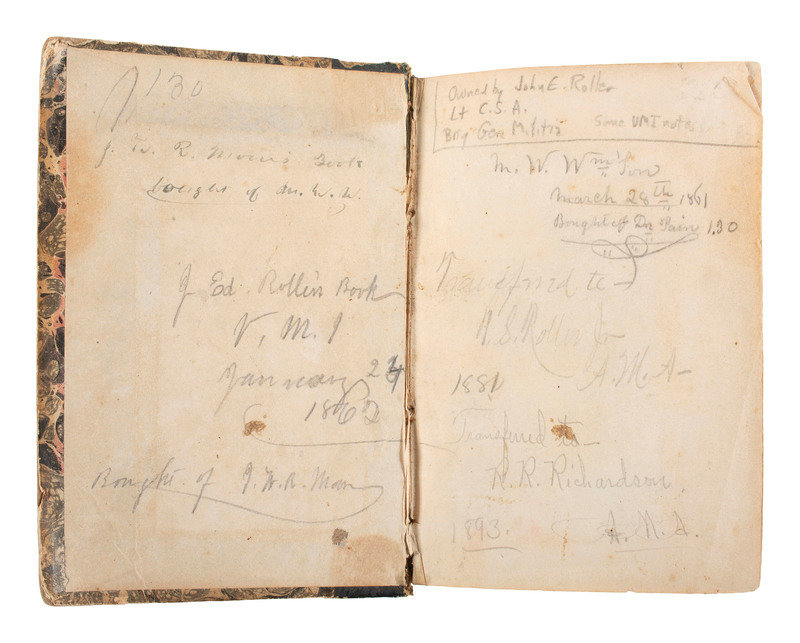 130
J. W. R. Moore's Book
Bought of M. W. W.
J Ed. Roller's Book
V, M. I
January 24
1862
Bought of J. W. R. Moore
Owned by John E. Roller
Lt C.S.A.
Brig Gen Militia Some VMI notes
M. W. Wm'son
March 28th 1861
Bought off Dr Pain 1.30
Transferred to
Roller Jr
A.M.A
1881
Transferred to
R. R. Richardson
1893. A.M.A.